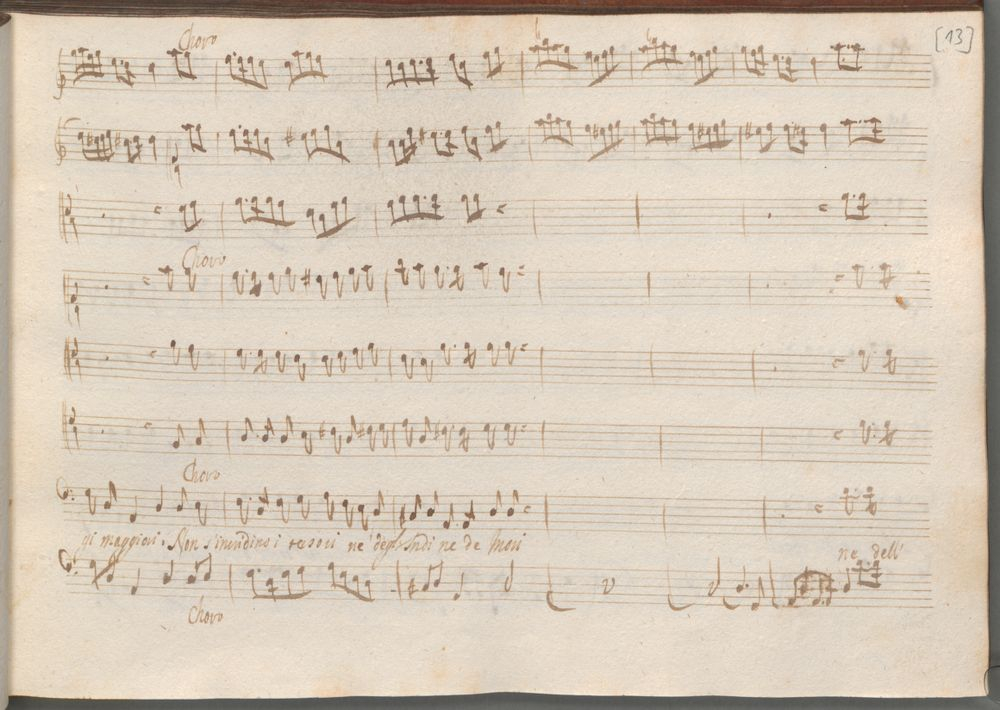 [13]
Choro
Choro
Choro
gi maggiori. Non s'invidino i tesori ne degl'Indi ne de Mori
ne dell'
Choro